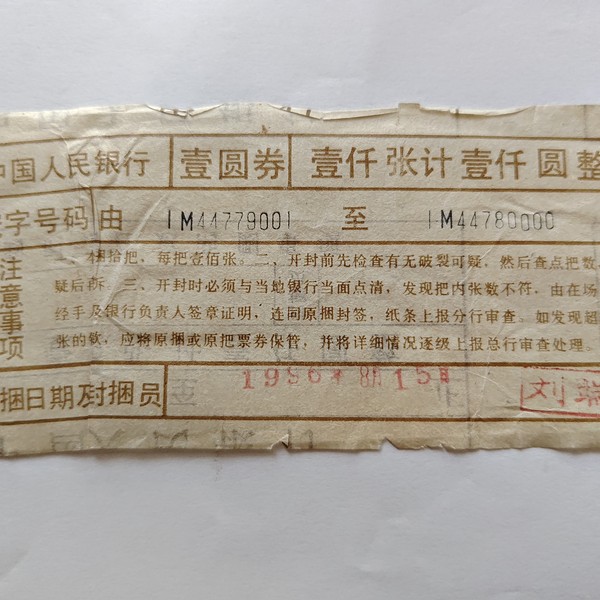 中国人民银行 壹圆券 壹仟张计壹仟圆整
字号码 由 IM44779001 至 IM44780000
注意事项
本捆拾把，每把壹佰张。二、开封前先检查有无破裂可疑，然后查点把数，
疑后拆。三、开封时必须与当地银行当面点清，发现把内张数不符，由在场
经手及银行负责人签章证明，连同原捆封签，纸条上报分行审查。如发现超
张的钦，应将原捆或原把票券保管，并将详细情况逐级上报总行审查处理。
捆日期及封捆员 1996年 8月15日 刘瑞